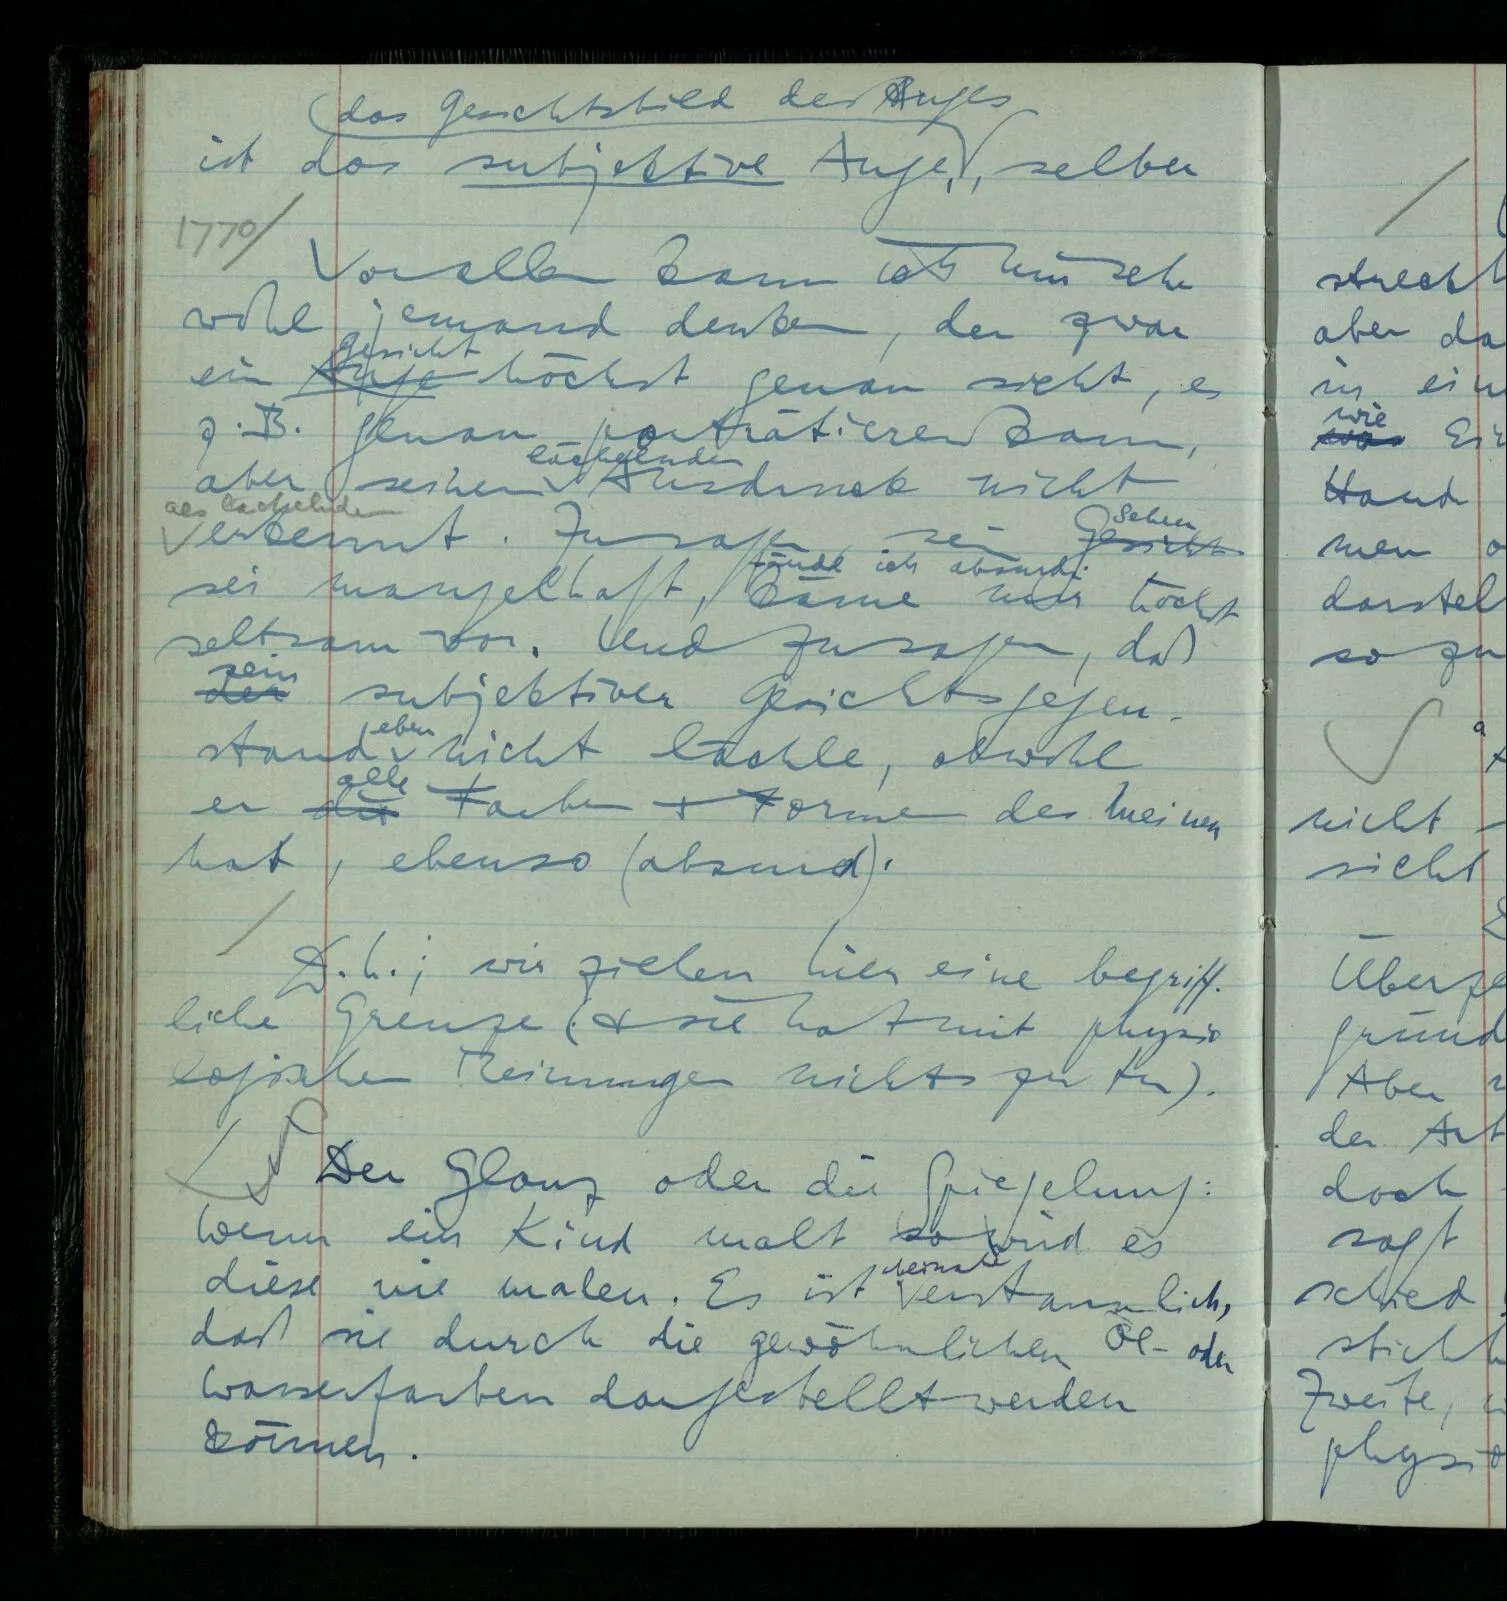 (das Gesichtsbild des Auges
ist das subjektive Auge), selber
1770/
Vor allem kann ich mir sehr
wohl jemand denken, der zwar
Gesicht
ein Auge höchst genau sieht, es
z.B. genau porträtieren kann,
lächelnden
aber seinen Ausdruck nicht
als lächelnden
erkennt. Zu sagen sein Gesicht
Sehen
sei mangelhaft, käme mir höchst
fände ich absurd.
seltsam vor. Und zu sagen, daß
sein
der subjektiver Gesichtsgegen-
eben
stand nicht lächle, obwohl
alle
er die Farben + Formen des meinen
hat, ebenso (absurd).
D.h.; wir ziehen hier eine begriff-
liche Grenze (& sie hat mit physio
logischen Meinungen nichts zu tun).
Der Glanz oder die Spiegelung:
Wenn ein Kind malt so wird es
diese nie malen. Es ist
beinahe
erstaunlich,
daß sie durch die gewöhnlichen Öl- oder
Wasserfarben dargestellt werden
können.
strecht
aber da
in ein
wie
was Ein
Hand
men
darstel
so zu
nicht
sicht
Überze
gründ
Aber
der Art
doch
sagt
schied
stich
Zweite, w
physio